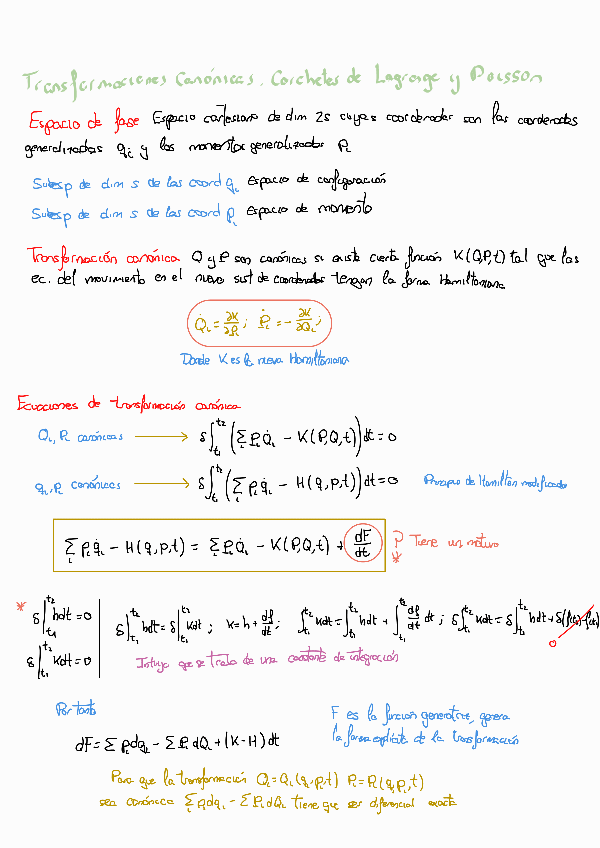 Transformaciones Canónicas. Corchetes de Lagrange y Poisson
Espacio de fase Espacio cartesiano de dim 2s cuyas coordenadas son las coordenadas
generalizadas qᵢ y los momentos generalizados Pᵢ
Subesp de dim s de las coord qᵢ Espacio de configuración
Subesp de dim s de las coord Pᵢ Espacio de momento
Transformación canónica Q y P son canónicas si existe cierta función K(Q,P,t) tal que las
ec. del movimiento en el nuevo sist de coordenadas tengan la forma Hamiltoniana
Q̇ᵢ = ∂K/∂Pᵢ ; Ṗᵢ = -∂K/∂Qᵢ ;
Donde K es la nueva Hamiltoniana
Ecuaciones de transformación canónica
Qᵢ, Pᵢ canónicas → δ∫_{t₁}^{t₂} (∑ᵢ PᵢQ̇ᵢ - K(P,Q,t)) dt = 0
qᵢ, Pᵢ canónicas → δ∫_{t₁}^{t₂} (∑ᵢ pᵢq̇ᵢ - H(q,p,t)) dt = 0 Principio de Hamilton modificado
∑ᵢ pᵢq̇ᵢ - H(q,p,t) = ∑ᵢ PᵢQ̇ᵢ - K(P,Q,t) + dF/dt ? Tiene un motivo
*
* δ∫_{t₁}^{t₂} hdt = 0 δ∫_{t₁}^{t₂} hdt = δ∫_{t₁}^{t₂} kdt ; k = h + df/dt ; ∫_{t₁}^{t₂} kdt = ∫_{t₁}^{t₂} hdt + ∫_{t₁}^{t₂} df/dt dt ; δ∫_{t₁}^{t₂} kdt = δ∫_{t₁}^{t₂} hdt + δ(f(t₂)-f(t₁))
0
δ∫_{t₁}^{t₂} kdt = 0 Intuyo que se trata de una constante de integración
Por tanto
dF = ∑ pᵢdqᵢ - ∑ PᵢdQᵢ + (K-H)dt
F es la función generatriz, genera
la forma explícita de la transformación
Para que la transformación Qᵢ = Qᵢ(q,p,t) Pᵢ = Pᵢ(q,p,t)
sea canónica ∑ᵢ pᵢdqᵢ - ∑ᵢ PᵢdQᵢ tiene que ser diferencial exacta